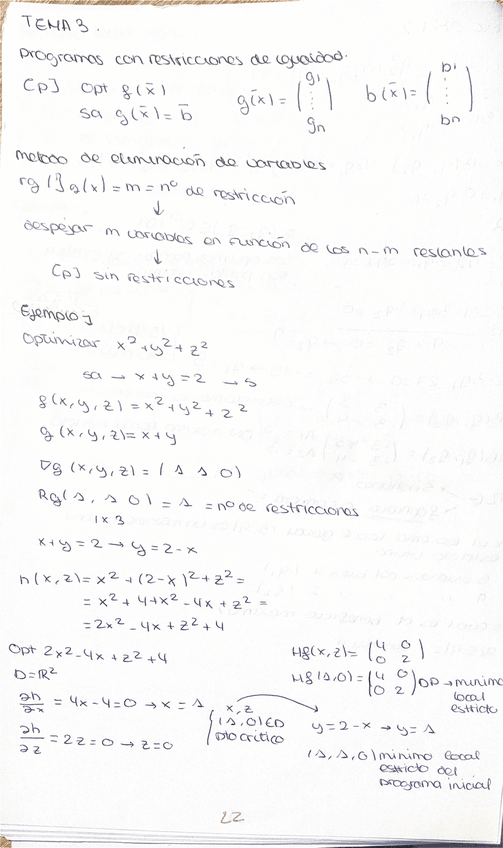 TEMA 3.
programas con restricciones de igualdad.
[P] opt f(x̄)
sa g(x̄) = b̄
g(x̄) = (g1 ⋮ gn)
b(x̄) = (b1 ⋮ bn)
metodo de eliminación de variables
rg(Jg(x) = m = nº de restricción
↓
despejar m variables en función de los n-m restantes
↓
[P] sin restricciones
Ejemplo]
Optimizar x² + y² + z²
sa → x + y = 2 → 1
f(x, y, z) = x² + y² + z²
g(x, y, z) = x + y
∇g(x, y, z) = (1 1 0)
Rg(1, 1 0) = 1 = nº de restricciones
1x3
x + y = 2 → y = 2 - x
h(x, z) = x² + (2-x)² + z² =
= x² + 4 + x² - 4x + z² =
= 2x² - 4x + z² + 4
Opt 2x² - 4x + z² + 4
D = ℝ²
∂h/∂x = 4x - 4 = 0 → x = 1
∂h/∂z = 2z = 0 → z = 0
x, z
(1, 0) ED
pto critico
Hf(x, z) = (4 0 / 0 2)
Hf(1, 0) = (4 0 / 0 2) DP → minimo
local
estricto
y = 2 - x → y = 1
(1, 1, 0) minimo local
estricto del
programa inicial
22